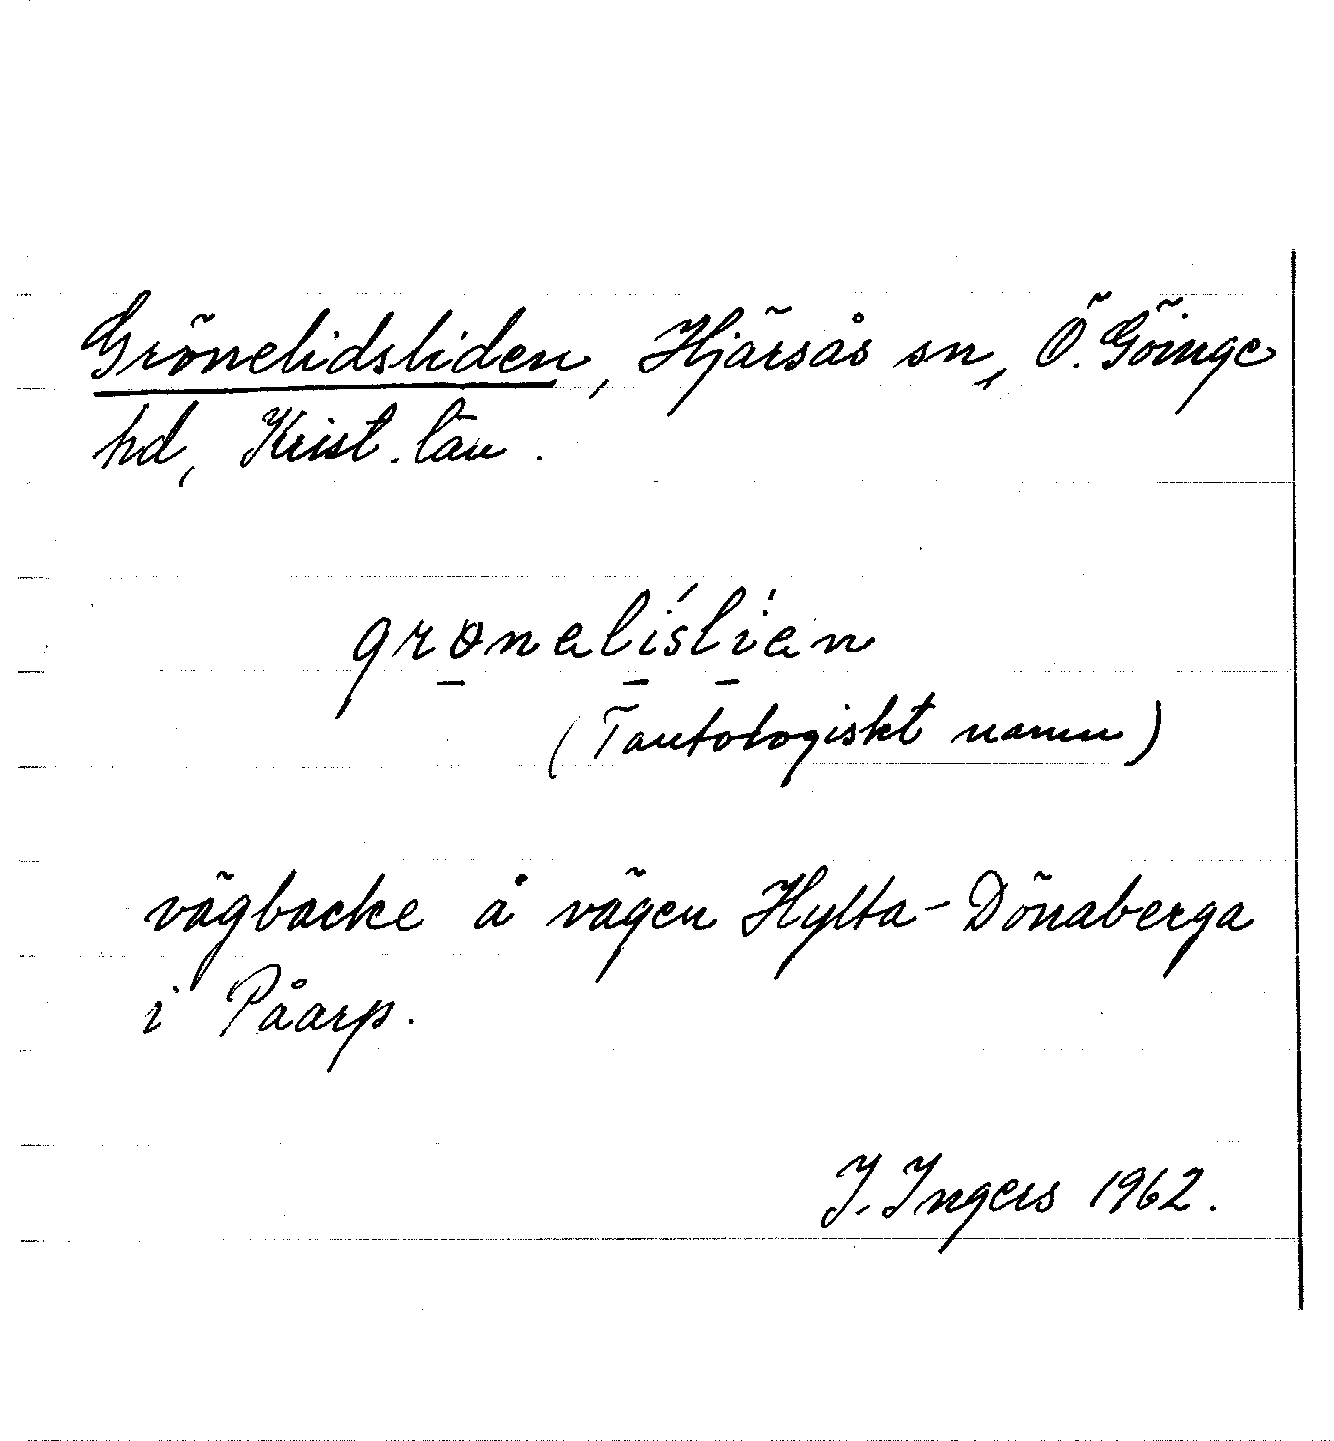 Grönelidsliden, Hjärsås sn, Ö. Göinge
hd, Krist. län.
grønelísli'en
(Tautologiskt namn)
vägbacke å vägen Hylta-Dönaberga
i Påarp.
I. Ingers 1962.